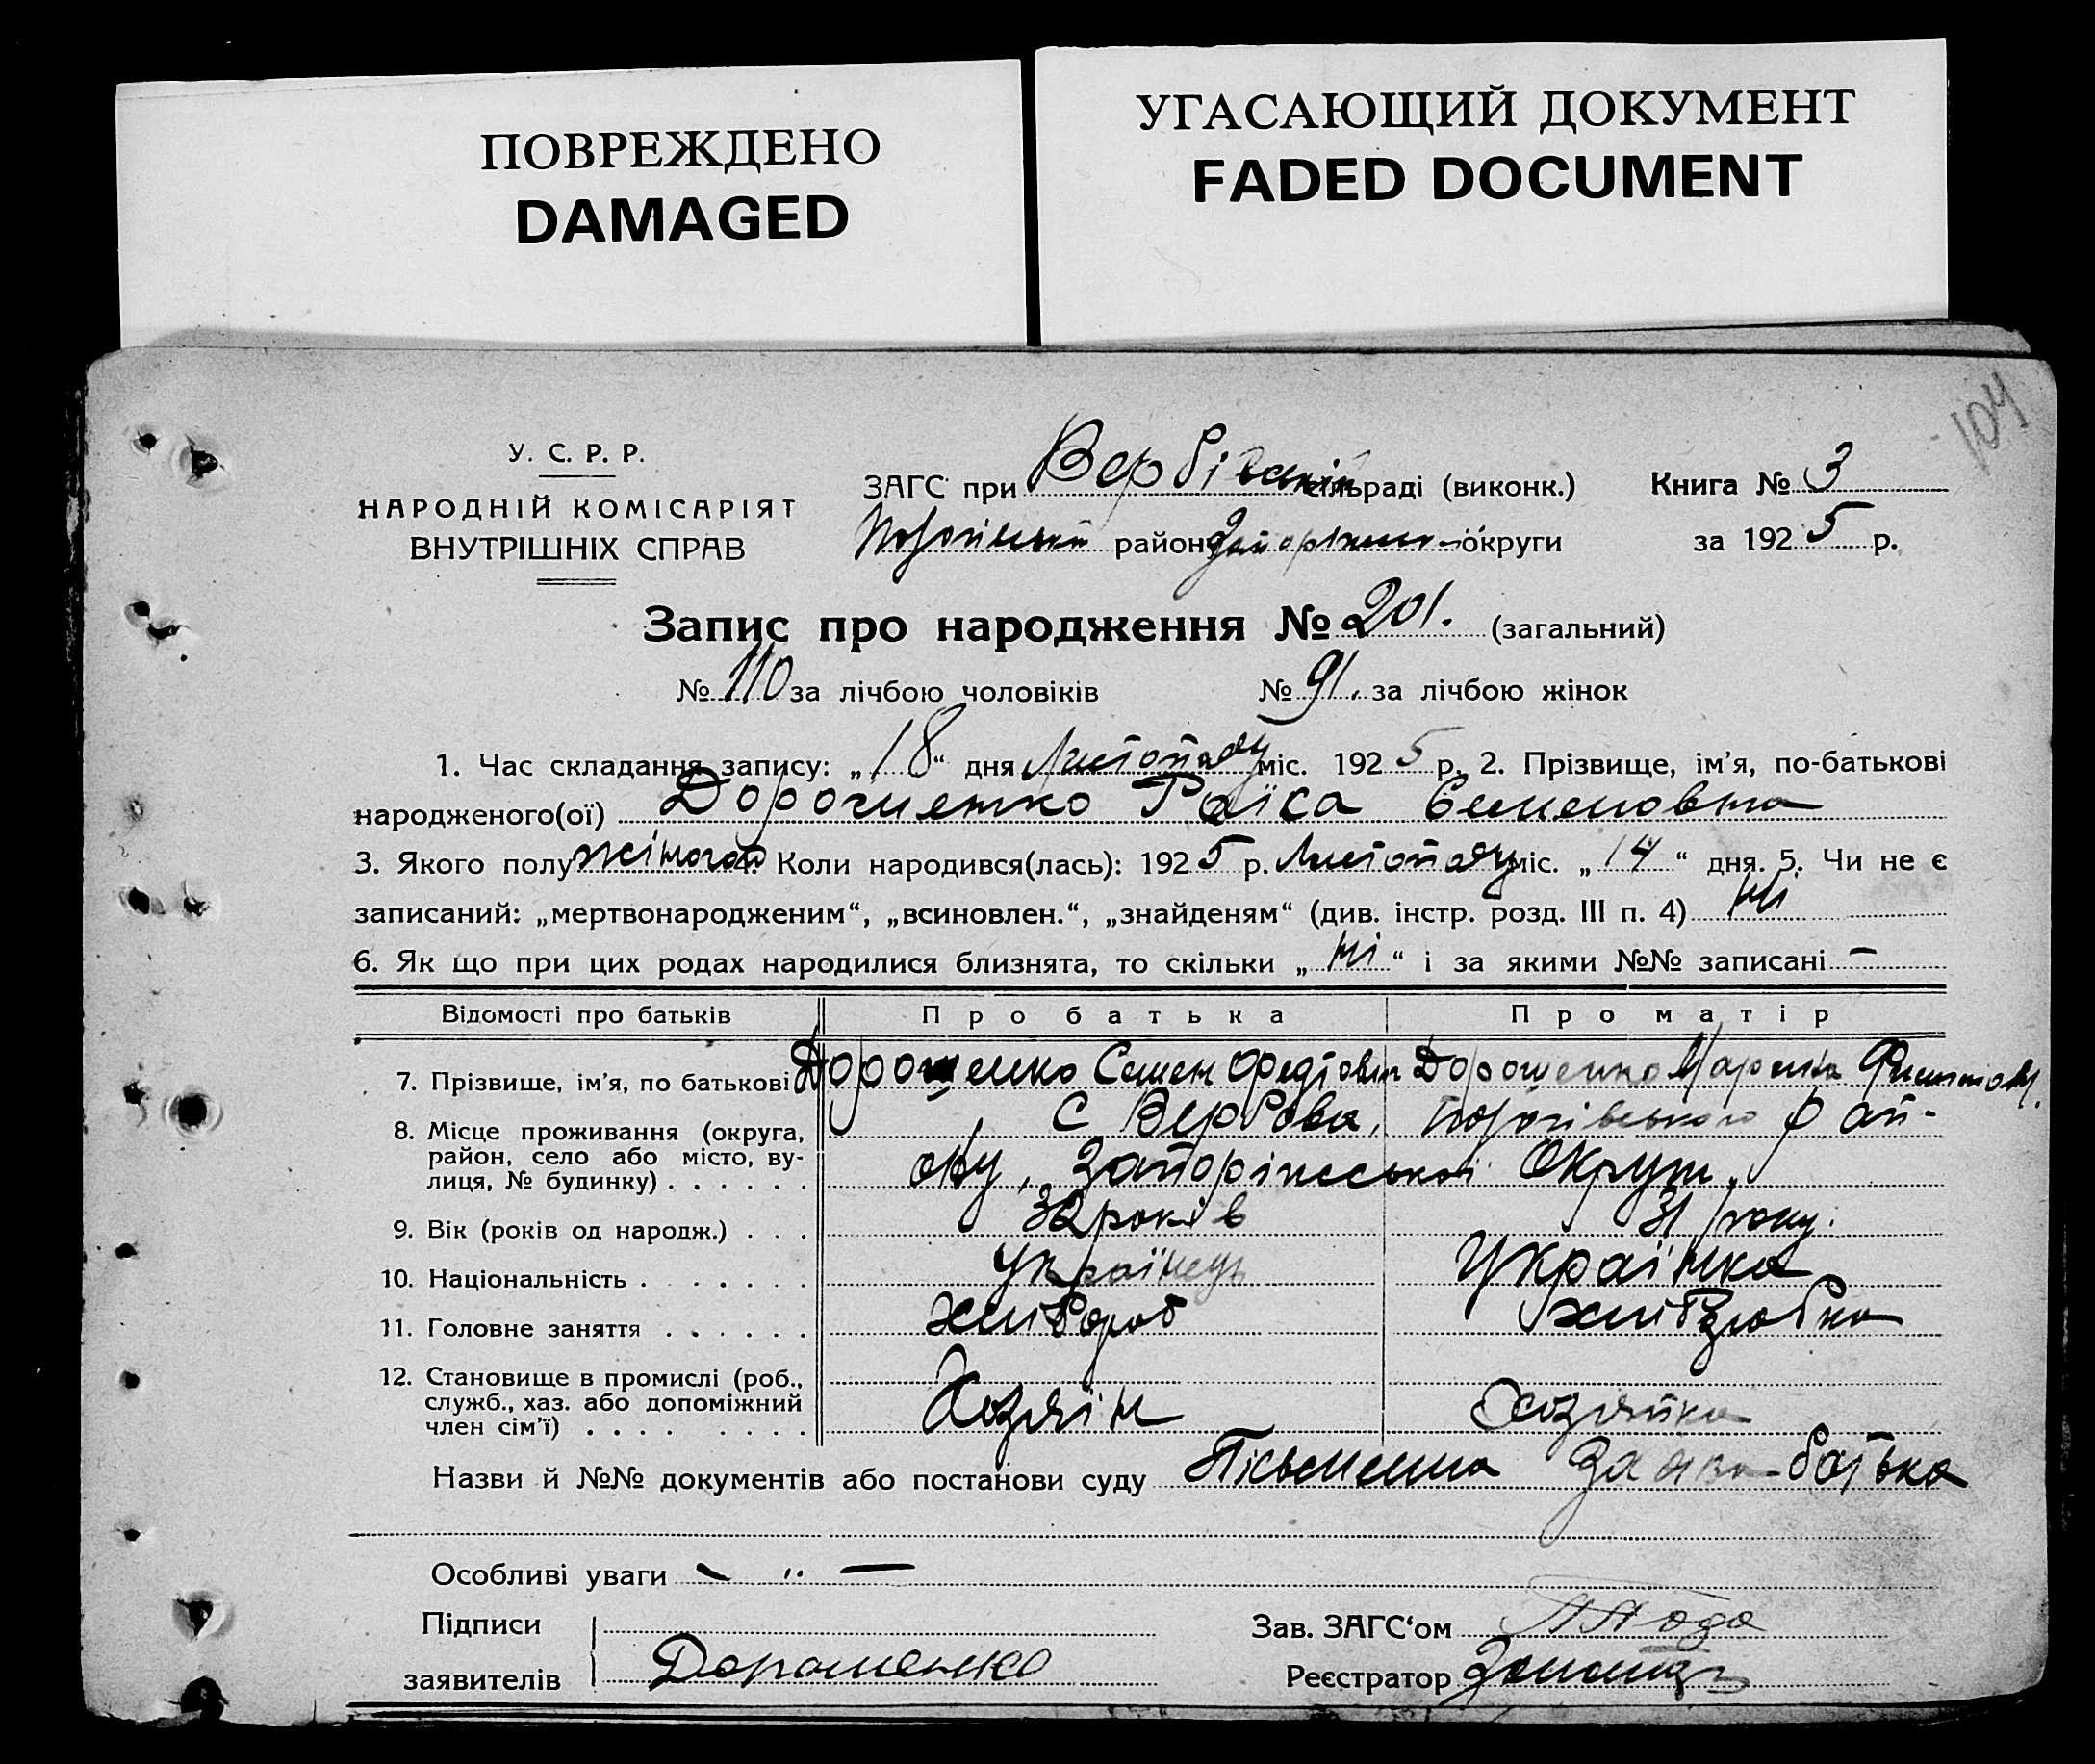 ПОВРЕЖДЕНО
DAMAGED
УГАСАЮЩИЙ ДОКУМЕНТ
FADED DOCUMENT
104
У. С. Р. Р.
НАРОДНІЙ КОМІСАРІЯТ
ВНУТРІШНІХ СПРАВ
ЗАГС при Вербівській сільраді (виконк.)
району Запоріжської округи
Книга № 3
за 1925 р.
Запис про народження № 201. (загальний)
№ 110 за лічбою чоловіків № 91. за лічбою жінок
1. Час складання запису: „18“ дня Листопаду міс. 1925 р. 2. Прізвище, ім’я, по-батькові
народженого(ої) Дорошенко Раїса Семеновна
3. Якого полу жіночої 4. Коли народився(лась): 1925 р. Листопаду міс. „14“ дня. 5. Чи не є
записаний: „мертвонародженим“, „всиновлен.“, „знайденям“ (див. інстр. розд. III п. 4) ні
6. Як що при цих родах народилися близнята, то скільки „ні“ і за якими №№ записані —
Відомості про батьків Про батька Про матір
7. Прізвище, ім’я, по батькові Дорошенко Семен Федіович Дорошенко
8. Місце проживання (округа, район, село або місто, вулиця, № будинку) . . . . . . С Вербова, Пологівського рай-
ону, Запоріжської Округи.
9. Вік (років од народж.) . . . 32 років 31 року.
10. Національність . . . . . . Українець Українка
11. Головне заняття . . . . . . хлібороб хлібзробка
12. Становище в промислі (роб., служб., хаз. або допоміжний член сім’ї) . . . . . . . . Хозяїн Хозяйка
Назви й №№ документів або постанови суду Пісьменна заява батька
Особливі уваги — „ —
Підписи
заявителів Дорошенко
Зав. ЗАГС‘ом
Реєстратор